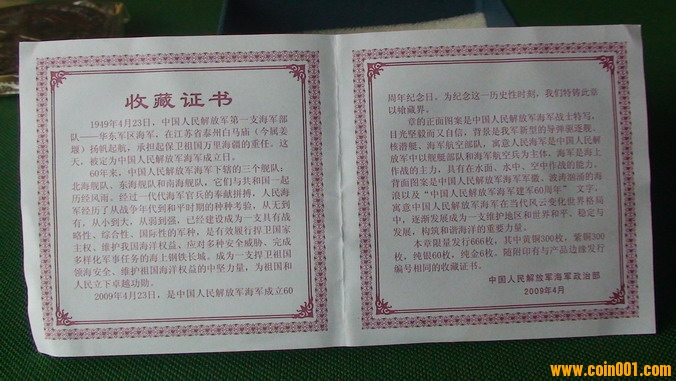 收藏证书
1949年4月23日，中国人民解放军第一支海军部
队——华东军区海军，在江苏省泰州白马庙（今属姜
堰）扬帆起航，承担起保卫祖国万里海疆的重任。这
天，被定为中国人民解放军海军成立日。
60年来，中国人民解放军海军下辖的三个舰队：
北海舰队、东海舰队和南海舰队，它们与共和国一起
历经风雨。经过一代代海军官兵的奉献拼搏，人民海
军经历了从战争年代到和平时期的种种考验，从无到
有，从小到大，从弱到强，已经建设成为一支具有战
略性、综合性、国际性的军种，是有效履行捍卫国家
主权、维护我国海洋权益，应对多种安全威胁、完成
多样化军事任务的海上钢铁长城，成为一支捍卫祖国
领海安全、维护祖国海洋权益的中坚力量，为祖国和
人民立下卓越功勋。
2009年4月23日，是中国人民解放军海军成立60
周年纪念日。为纪念这一历史性时刻，我们特铸此章
以飨藏界。
章的正面图案是中国人民解放军海军战士特写，
目光坚毅而又自信，背景是我军新型的导弹驱逐舰、
核潜艇、海军航空部队，寓意人民海军是中国人民解
放军中以舰艇部队和海军航空兵为主体，海军是海上
作战的主力，具有在水面、水中、空中作战的能力。
背面图案是中国人民解放军海军军徽、波涛汹涌的海
浪以及“中国人民解放军海军建军60周年”文字，
寓意中国人民解放军海军在当代风云变化世界格局
中，逐渐发展成为一支维护地区和世界和平、稳定与
发展，构筑和谐海洋的重要力量。
本章限量发行666枚，其中黄铜300枚，紫铜300
枚，纯银60枚，纯金6枚。随附印有与产品边缘发行
编号相同的收藏证书。
中国人民解放军海军政治部
2009年4月
www.coin001.com